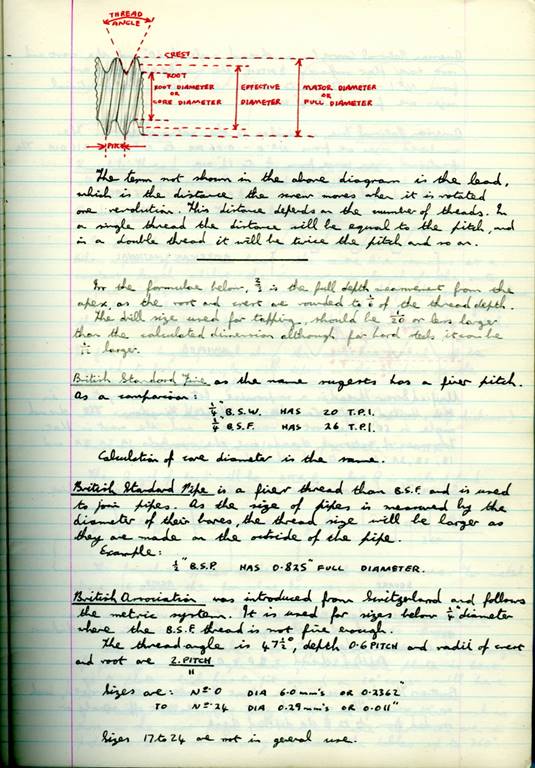 THREAD
ANGLE
CREST
ROOT
ROOT DIAMETER
OR
CORE DIAMETER
EFFECTIVE
DIAMETER
MAJOR DIAMETER
OR
FULL DIAMETER
PITCH
The term not shown in the above diagram is the lead,
which is the distance the screw moves when it is rotated
one revolution. This distance depends on the number of threads. In
a single thread the distance will be equal to the pitch, and
in a double thread it will be twice the pitch and so on.
For the formulae below, 2/3 is the full depth measurement from the
apex, as the root and crest are rounded to 1/6 of the thread depth.
The drill size used for tapping, should be 1/20 or less larger
than the calculated dimension although for hard steels it can be
larger.
British Standard Fine as the name sugests has a finer pitch.
As a comparison:
1/4" B.S.W. HAS 20 T.P.I.
1/4" B.S.F. HAS 26 T.P.I.
Calculation of core diameter is the same.
British Standard Pipe is a finer thread than B.S.F. and is used
to join pipes. As the size of pipes is measured by the
diameter of their bores, the thread size will be larger as
they are made on the outside of the pipe.
Example:
1/2" B.S.P. HAS 0.825" FULL DIAMETER.
British Association was introduced from Switzerland and follows
the metric system. It is used for sizes below 1/4" diameter
where the B.S.F. thread is not fine enough.
The thread angle is 47½°, depth 0.6 PITCH and radii of crest
and root are 2.PITCH
11
Sizes are: Nº 0 DIA 6.0 mm's OR 0.2362"
TO Nº 24 DIA 0.29 mm's OR 0.011"
Sizes 17 to 24 are not in general use.